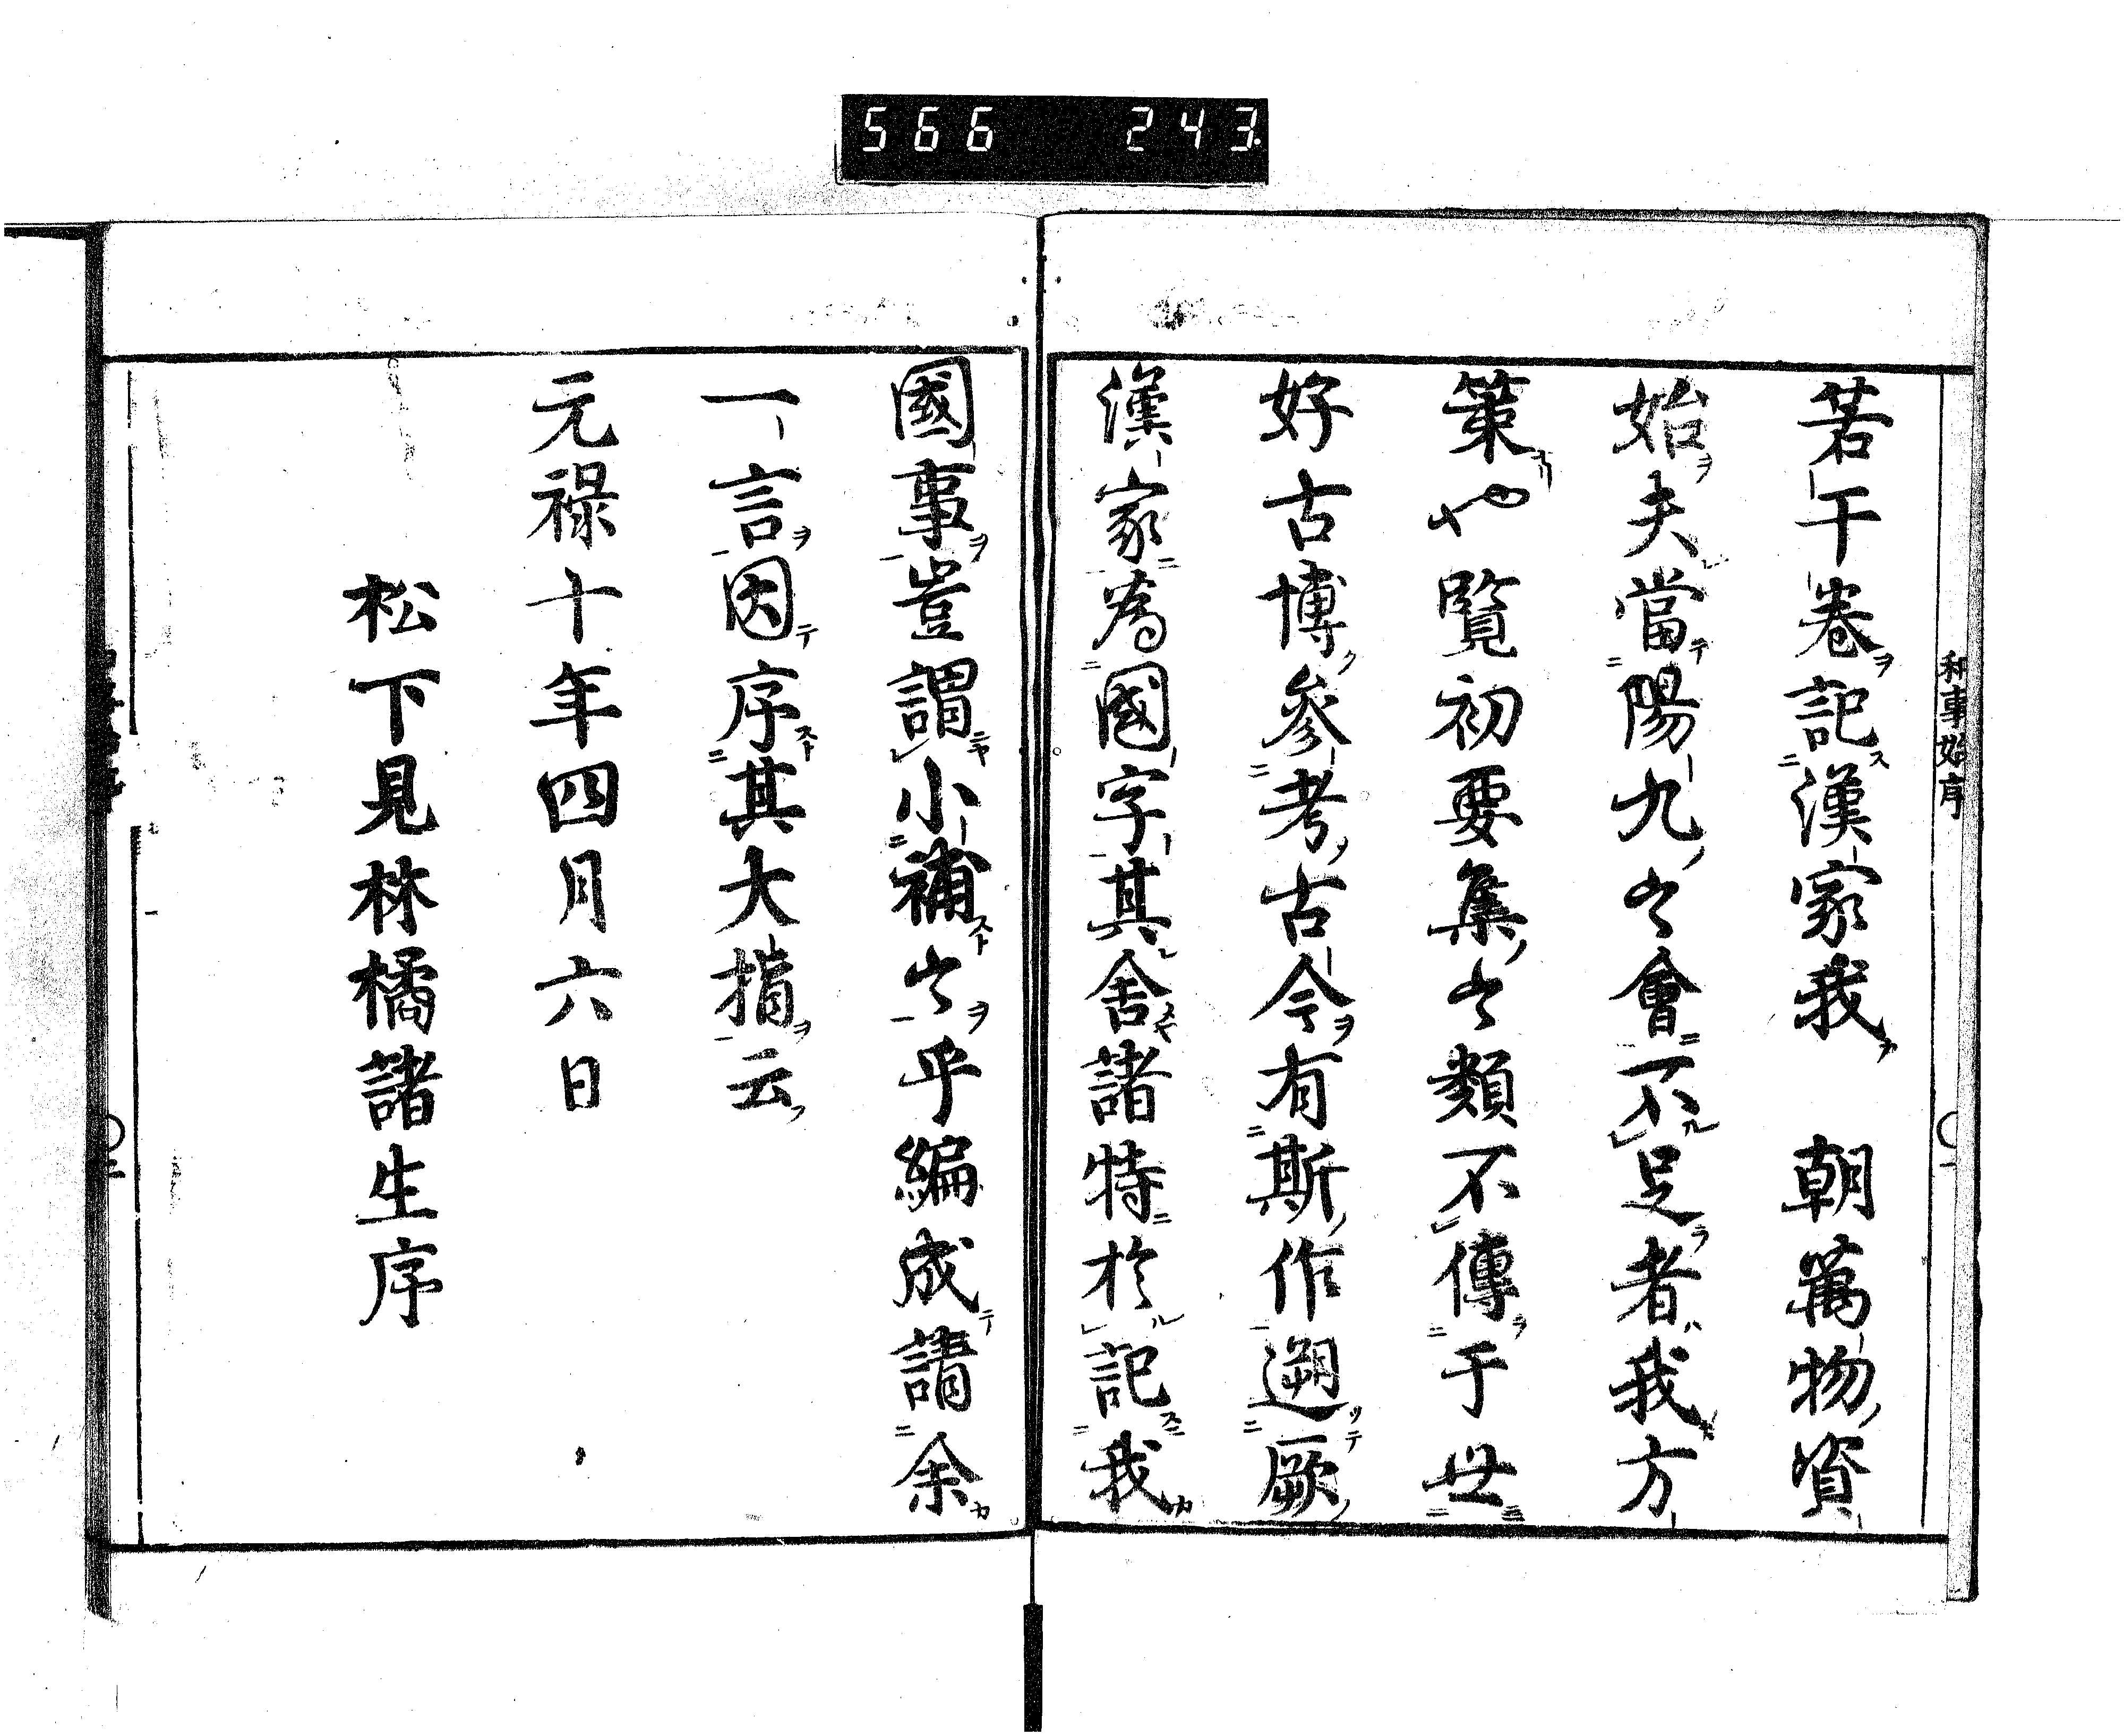 566 243
和事始序 〇一
若干卷記漢家我　朝萬物資
始夫當陽九之會不足者我方
策也覧初要集之類不傳于世
好古博參考古今有斯作遡厥
漢家為國字其舍諸特於記我
國事豈謂小補之乎編成請余
一言因序其大指云
元禄十年四月六日
松下見林橘諸生序